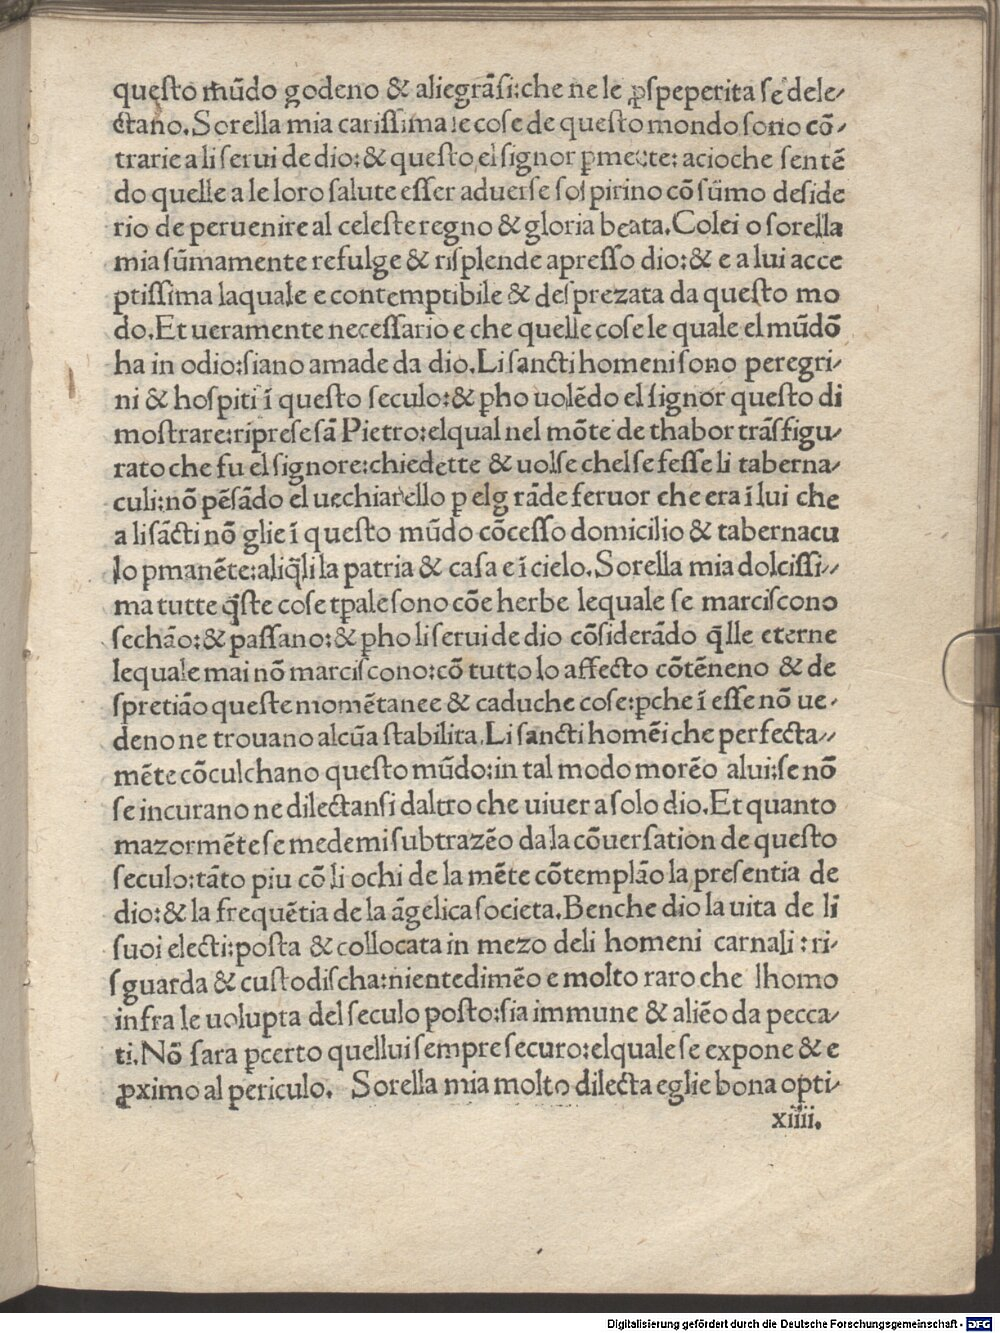 questo mūdo godeno & aliegrāsi:che ne le ꝓspeperita se dele⸗
ctano.Sorella mia carissima le cose de questo mondo sono cō⸗
trarie a li serui de dio:& questo el signor ꝑmecte: acioche sentē
do quelle a le loro salute esser aduerse sospirino cō sūmo deside
rio de peruenire al celeste regno & gloria beata.Colei o sorella
mia sūmamente refulge & risplende apresso dio:& e a lui acce
ptissima laquale e contemptibile & desprezata da questo mo
do.Et ueramente necessario e che quelle cose le quale el mūdō
ha in odio:siano amade da dio.Li sancti homeni sono peregri⸗
ni & hospiti ī questo seculo:& ꝑho uolēdo el signor questo di
mostrare:riprese sā Pietro:elqual nel mōte de thabor trāsfigu⸗
rato che fu el signore:chiedette & uolse chel se fesse li taberna⸗
culi:nō pēsādo el uechiarello ꝑ el grāde feruor che era ī lui che
a li sācti nō glie ī questo mūdo cōcesso domicilio & tabernacu
lo ꝑmanēte:aliq̄li la patria & casa e ī cielo.Sorella mia dolcissi⸗
ma tutte q̄ste cose tꝑale sono cōe herbe lequale se marciscono
sechāo:& passano:& ꝑho li serui de dio cōsiderādo q̄lle eterne
lequale mai nō marciscono:cō tutto lo affecto cōtēneno & de
spretiāo queste momētanee & caduche cose:ꝑche ī esse nō ue⸗
deno ne trouano alcūa stabilita.Li sancti homēi che perfecta⸗
mēte cōculchano questo mūdo:in tal modo morēo alui:se nō
se incurano ne dilectansi daltro che uiuer a solo dio.Et quanto
mazormēte se medemi subtrazēo da la cōuersation de questo
seculo:tāto piu cō li ochi de la mēte cōtemplāo la presentia de
dio:& la frequētia de la āgelica societa.Benche dio la uita de li
suoi electi:posta & collocata in mezo deli homeni carnali:ri⸗
sguarda & custodischa:nientedimēo e molto raro che lhomo
infra le uolupta del seculo posto:sia immune & aliēo da pecca⸗
ti.Nō sara ꝑcerto quellui sempre securo:elquale se expone & e
ꝓximo al periculo. Sorella mia molto dilecta eglie bona opti⸗
xiiii.
Digitalisierung gefördert durch die Deutsche Forschungsgemeinschaft - DFG